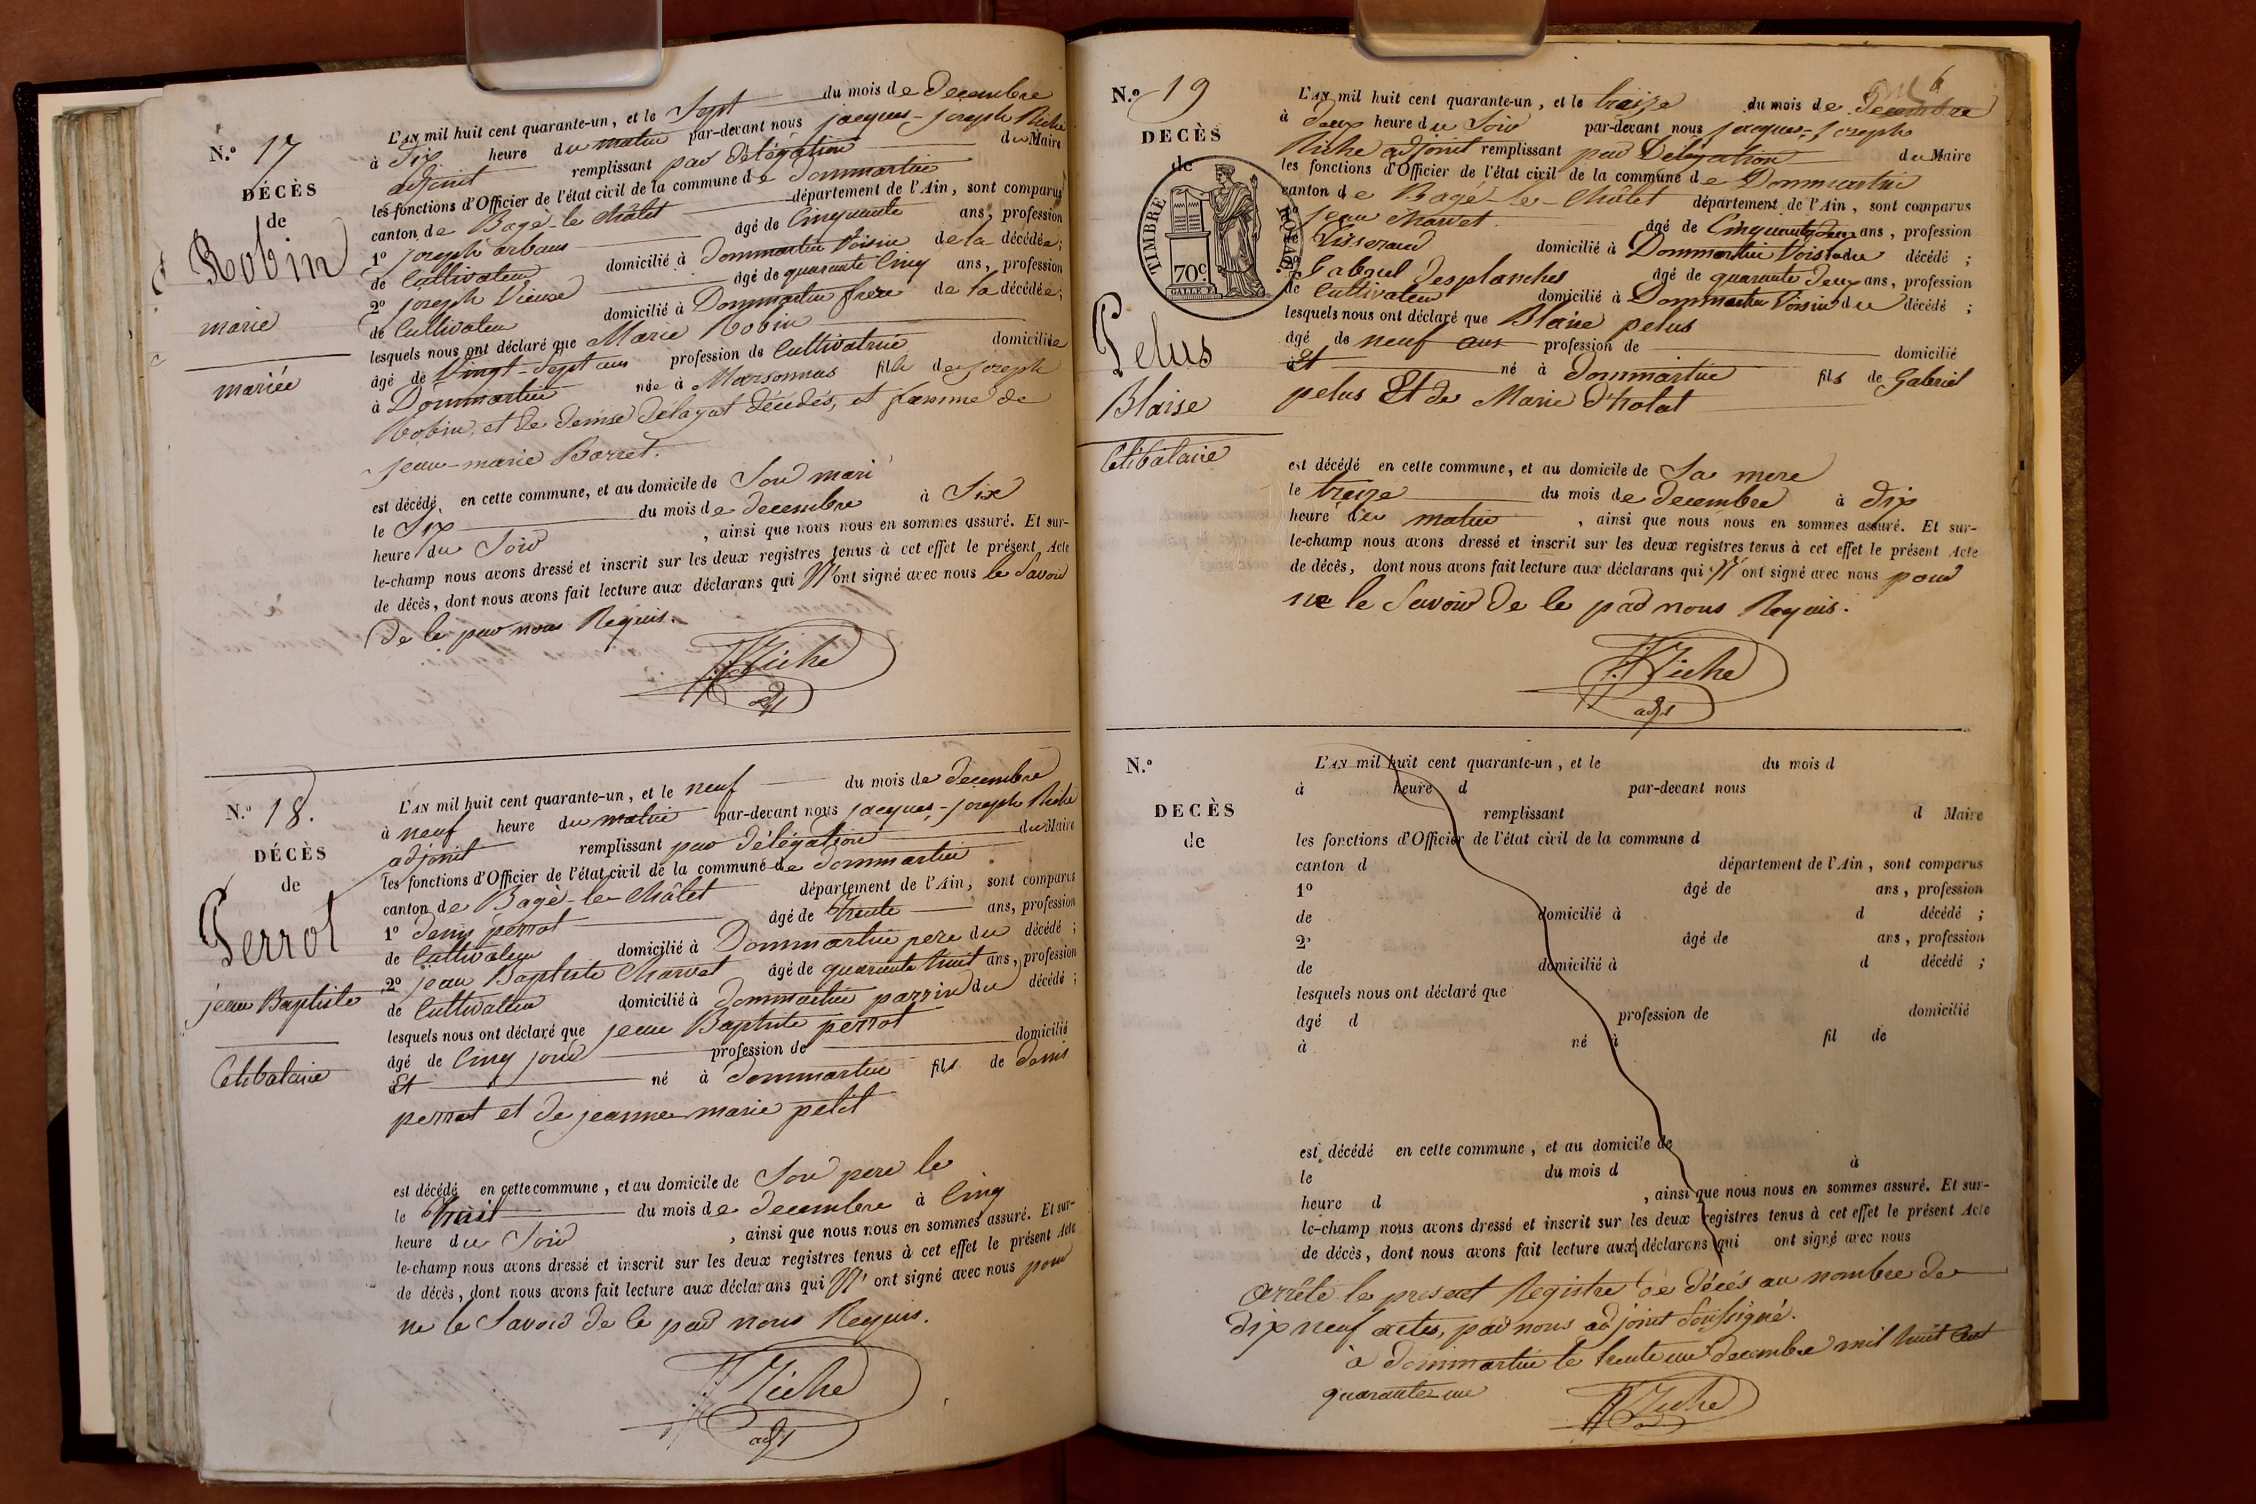 N.° 17
DÉCÈS
de
Robin
marie
mariée
L'AN mil huit cent quarante-un, et le Sept du mois de decembre
à dix heure du matin par-devant nous jacques-joseph Riche
adjoint remplissant par délégation du Maire
les fonctions d'Officier de l'état civil de la commune de dommartin
canton de Bagé-le-Châtel département de l'Ain, sont comparus
1° joseph arbaus âgé de Cinquante ans, profession
de Cultivateur domicilié à dommartin Voisin de la décédée;
2° joseph Vieux âgé de quarante Cinq ans, profession
de Cultivateur domicilié à Dommartin frère de la décédée;
lesquels nous ont déclaré que Marie Robin
âgé de Vingt-Sept ans profession de Cultivatrice domiciliée
à Dommartin née à Marsonnas fille de joseph
Robin, et de denise délayat décédés, et femme de
jean-marie Barret.
est décédé, en cette commune, et au domicile de Son mari
le Six du mois de decembre à Six
heure du Soir, ainsi que nous nous en sommes assuré. Et sur-
le-champ nous avons dressé et inscrit sur les deux registres tenus à cet effet le présent Acte
de décès, dont nous avons fait lecture aux déclarans qui N'ont signé avec nous le Savoir
de le par nous Requis.
Riche
adjt
N.° 18.
DÉCÈS
de
Perrot
jean Baptiste
Celibataire
L'AN mil huit cent quarante-un, et le neuf du mois de decembre
à neuf heure du matin par-devant nous jacques-joseph Riche
adjoint remplissant par délégation du Maire
les fonctions d'Officier de l'état civil de la commune de dommartin
canton de Bagé-le-Châtel département de l'Ain, sont comparus
1° denis perrot âgé de trente ans, profession
de Cultivateur domicilié à Dommartin pere du décédé;
2° jean Baptiste Charvet âgé de quarante huit ans, profession
de Cultivateur domicilié à dommartin parrin du décédé;
lesquels nous ont déclaré que jean Baptiste perrot
âgé de Cinq jour profession de domicilié
à Et né à dommartin fils de denis
perrot et de jeanne marie petit
est décédé en cette commune, et au domicile de Son pere le
le huit du mois de decembre à Cinq
heure du Soir, ainsi que nous nous en sommes assuré. Et sur-
le-champ nous avons dressé et inscrit sur les deux registres tenus à cet effet le présent Acte
de décès, dont nous avons fait lecture aux déclarans qui N'ont signé avec nous pour
ne le Savoir de le par nous Requis.
Riche
adjt
N.° 19
DECÈS
de
TIMBRE ROYAL
70c
Pelus
Blaise
Celibataire
6
L'AN mil huit cent quarante-un, et le treize du mois de decembre
à deux heure du Soir par-devant nous jacques-joseph
Riche adjoint remplissant par Délégation du Maire
les fonctions d'Officier de l'état civil de la commune de Dommartin
canton de Bagé-le-Châtel département de l'Ain, sont comparus
jean Charvet âgé de Cinquante deux ans, profession
Tisserand domicilié à Dommartin Voisin du décédé;
Gabriel desplanches âgé de quarante deux ans, profession
de Cultivateur domicilié à Dommartin Voisin du décédé;
lesquels nous ont déclaré que Blaise pelus
âgé de neuf ans profession de domicilié
à Et né à dommartin fils de Gabriel
pelus Et de Marie
est décédé en cette commune, et au domicile de Sa mere
le treize du mois de decembre à dix
heure du matin, ainsi que nous nous en sommes assuré. Et sur-
le-champ nous avons dressé et inscrit sur les deux registres tenus à cet effet le présent Acte
de décès, dont nous avons fait lecture aux déclarans qui N'ont signé avec nous pour
ne le Savoir de le par nous Requis.
Riche
adjt
N.°
DECÈS
de
L'AN mil huit cent quarante-un, et le du mois d
à heure d par-devant nous
remplissant d Maire
les fonctions d'Officier de l'état civil de la commune d
canton d département de l'Ain, sont comparus
1° âgé de ans, profession
de domicilié à d décédé;
2° âgé de ans, profession
de domicilié à d décédé;
lesquels nous ont déclaré que
âgé d profession de domicilié
à né à fil de
est décédé en cette commune, et au domicile de
le du mois d à
heure d, ainsi que nous nous en sommes assuré. Et sur-
le-champ nous avons dressé et inscrit sur les deux registres tenus à cet effet le présent Acte
de décès, dont nous avons fait lecture aux déclarans qui ont signé avec nous
arrêté le present Registre de décés au nombre de
dix neuf actes, par nous adjoint Soussigné.
à dommartin le trente un decembre mil huit cent
quarante un
Riche